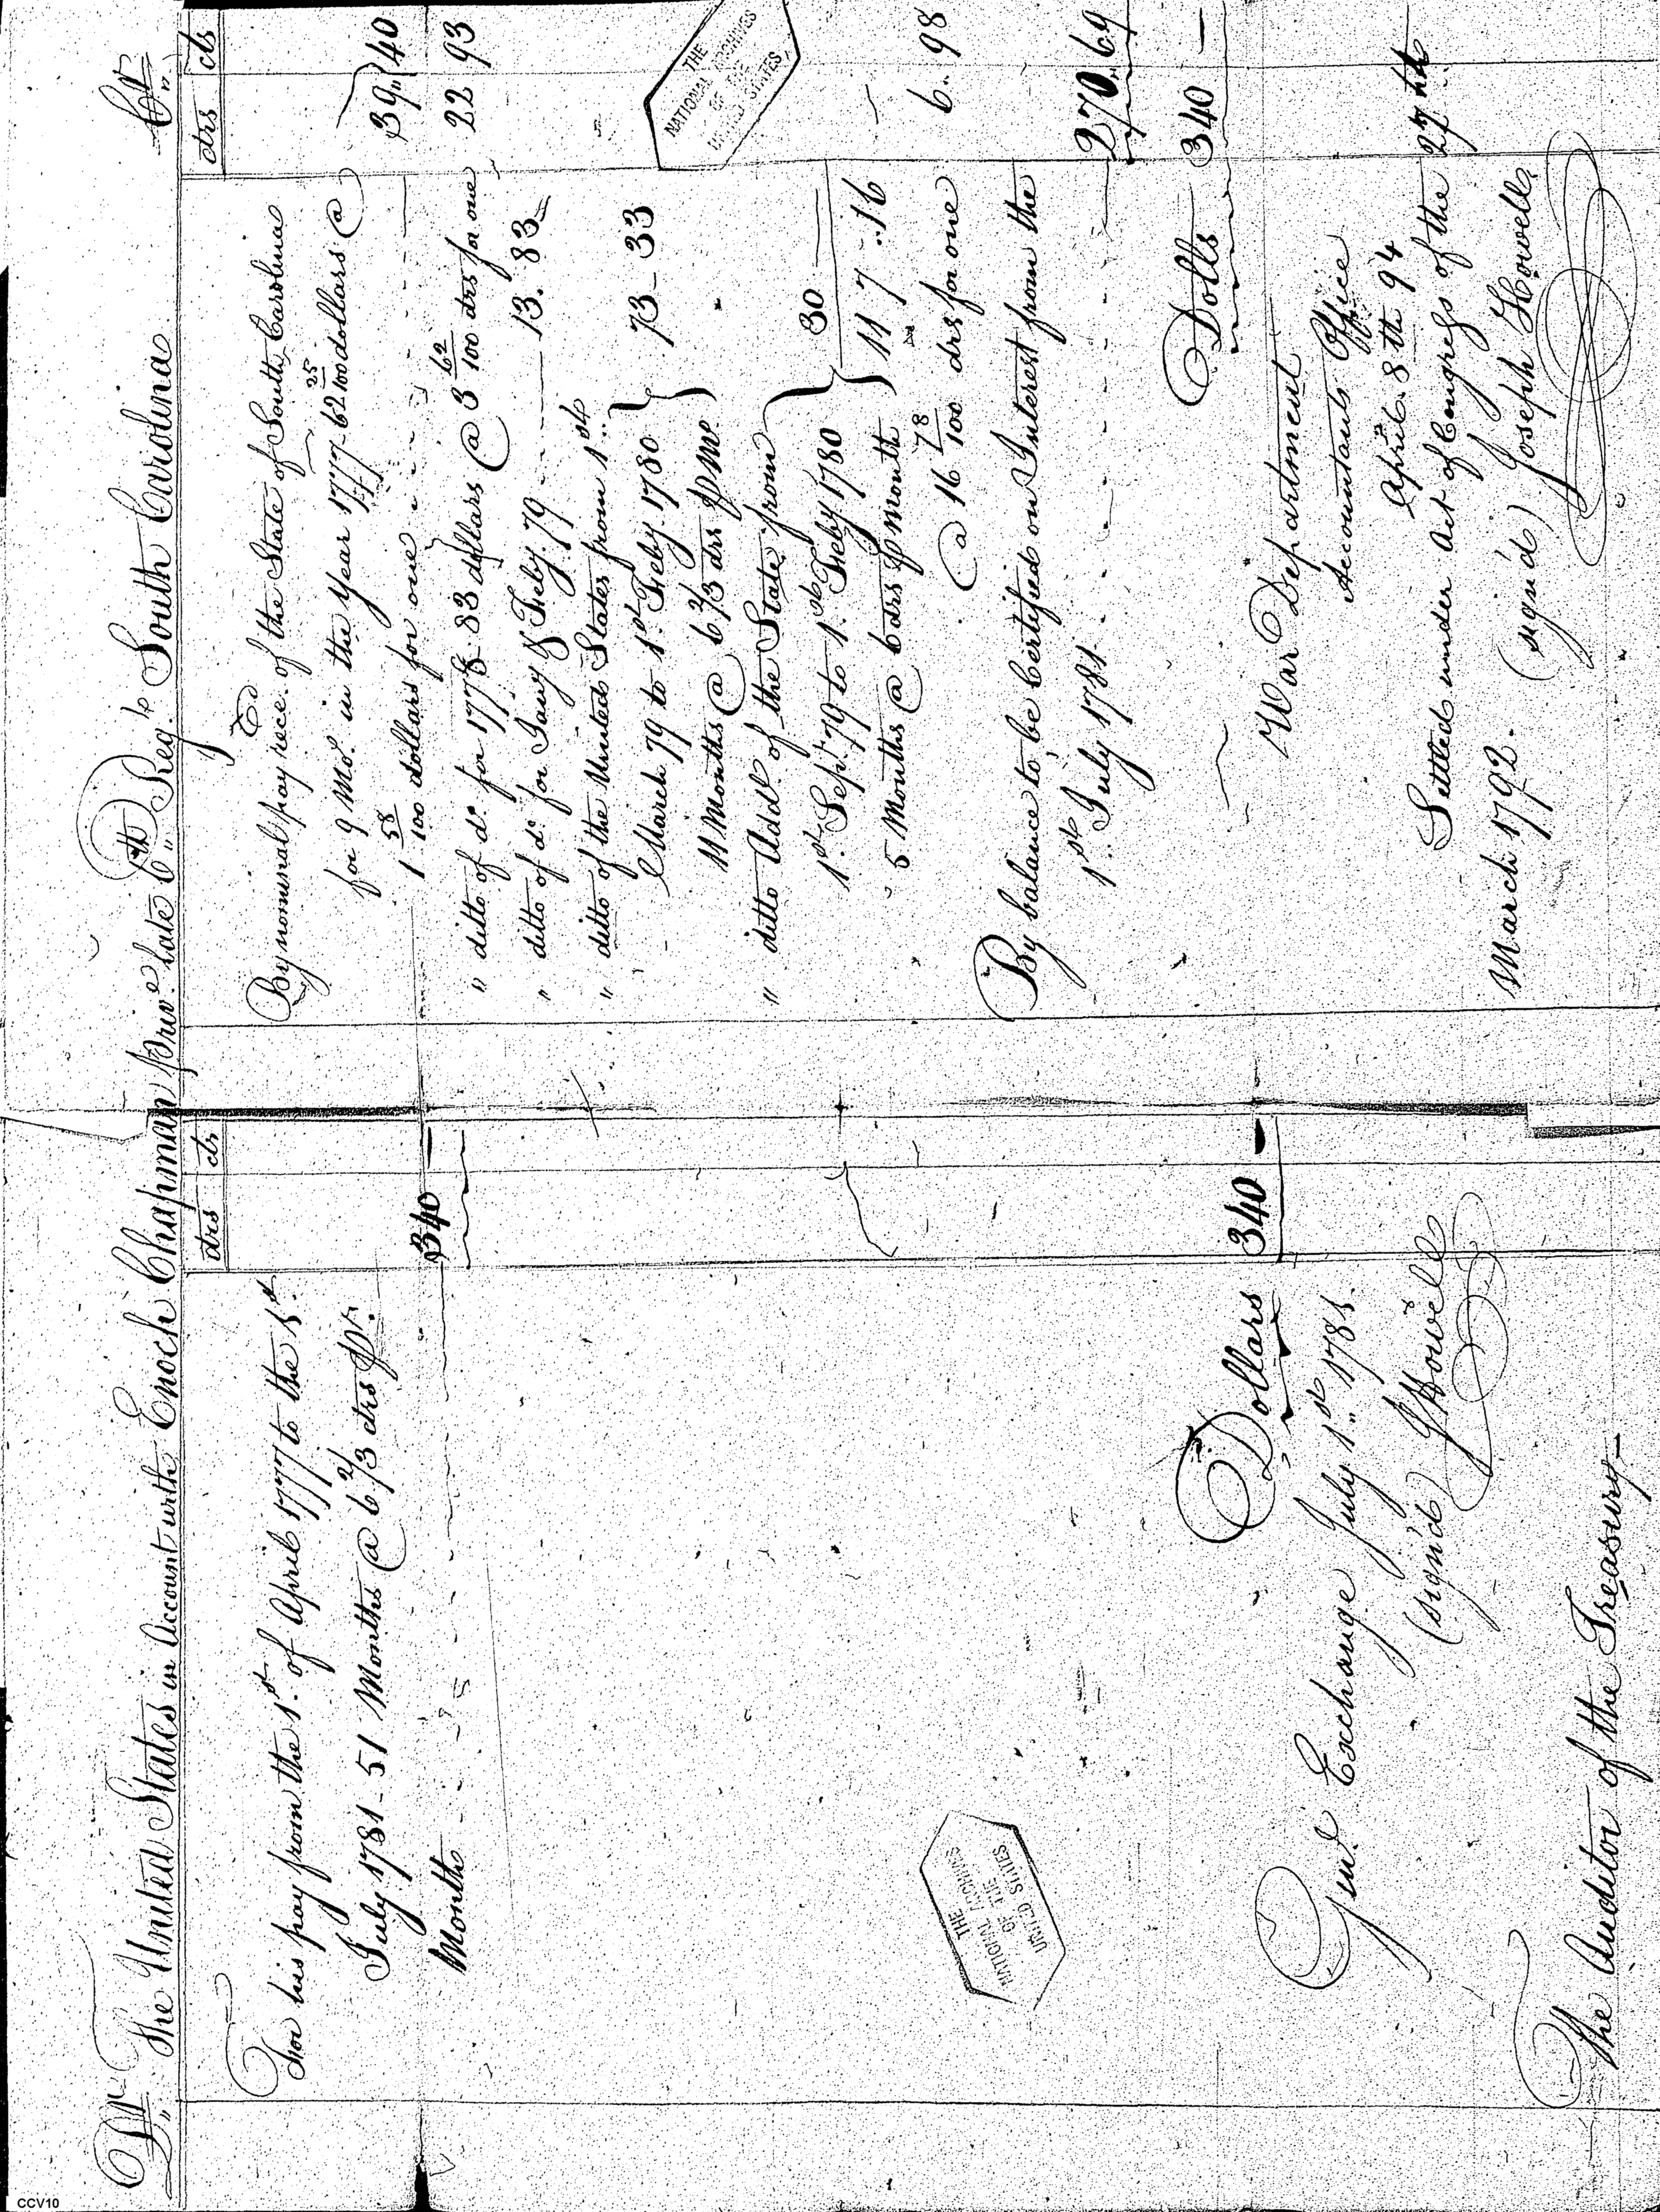 Dr. The United States in Account with Enoch Chapman Priv.e late 6.th Reg.t South Carolina Cr.
drs cts
For his pay from the 1.st of April 1777 to the 1.st
July 1781 - 51 Months @ 6 2/3 drs pr.
Month - - - 340 —
Dollars 340 —
Exchange July 1.st 1781.
(sign'd) J Howell
The Auditor of the Treasury —
drs cts
By nominal pay rec'd of the State of South Carolina
for 9 Mo.s in the Year 1777 - 62 25/100 dollars @
1 58/100 dollars for one } 39 " 40
" ditto of do for 1778 - 83 dollars @ 3 62/100 drs for one 22 93
" ditto of do for Jany & Feby. 79 - - - 13. 83
" ditto of the United States from 1.st
March 79 to 1.st Feby. 1780 }
11 Months @ 6 2/3 drs pr Mo. } 73 - 33
" ditto Add.l of the State from
1.st Sept. 79 to 1.st Feby 1780 }
5 Months @ 6 drs pr Month } 30 —
117 . . 16
@ 16 78/100 drs for one 6 . . 98
By balance to be Certified on Interest from the
1.st July 1781 - - - 270 . 69
Dolls 340 —
War Department
Accountants Office
April 8th 94
Settled under Act of Congress of the 27th
March 1792.
(sign'd) Joseph Howell
THE
NATIONAL ARCHIVES
OF THE
UNITED STATES
THE
NATIONAL ARCHIVES
OF THE
UNITED STATES
CCV10